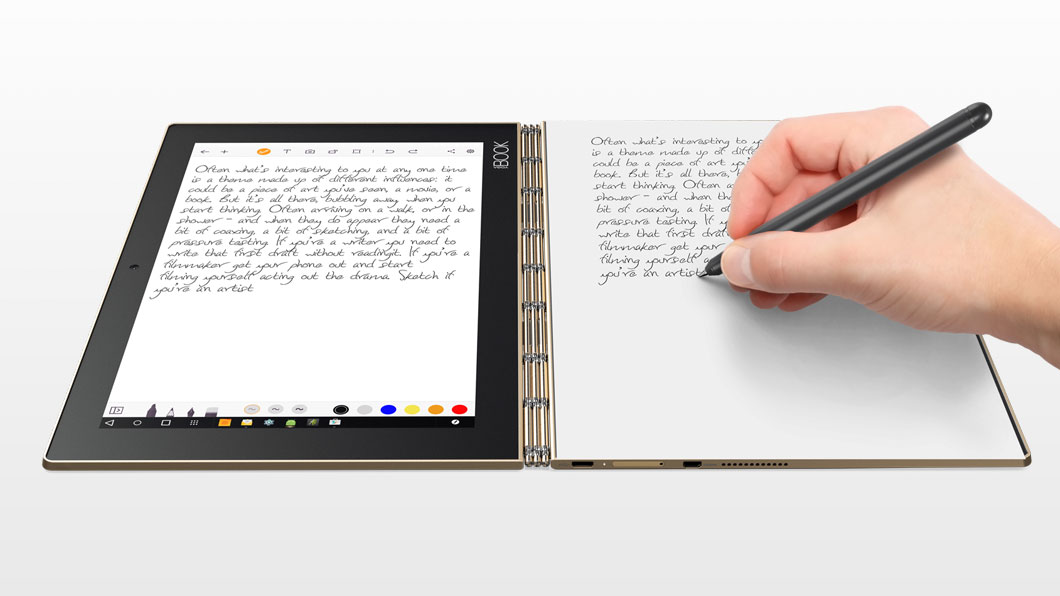 BOOK
Often what's interesting to you at any one time
is a theme made up of different influences: it
could be a piece of art you've seen, a movie, or a
book. But it's all there, bubbling away when you
start thinking. Often arriving on a walk, or in the
shower - and when they do appear they need a
bit of coaxing, a bit of sketching, and a bit of
pressure testing. If you're a writer you need to
write that first draft without readingit. If you're a
filmmaker get your phone out and start
filming yourself acting out the drama. Sketch if
you're an artist
Often what's interesting to
is a theme made up of
could be a piece of art
book. But it's all there,
start thinking. Often
bit of coaxing, a bit of
shower - and when
pressure testing. If
write that first
filmmaker get your
filming yourself
you're an artist